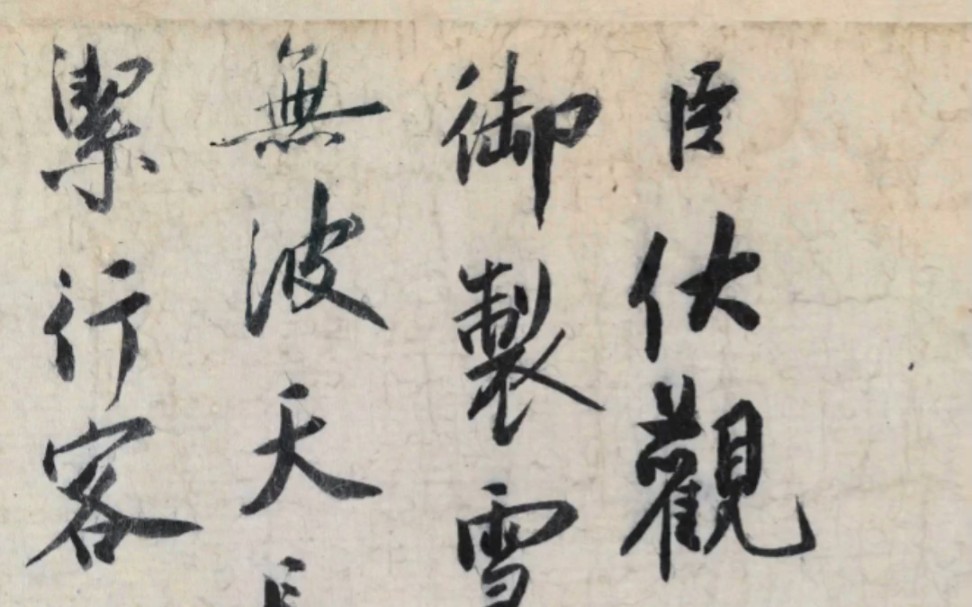 臣伏觀
御製雪
無波天長
潔行客